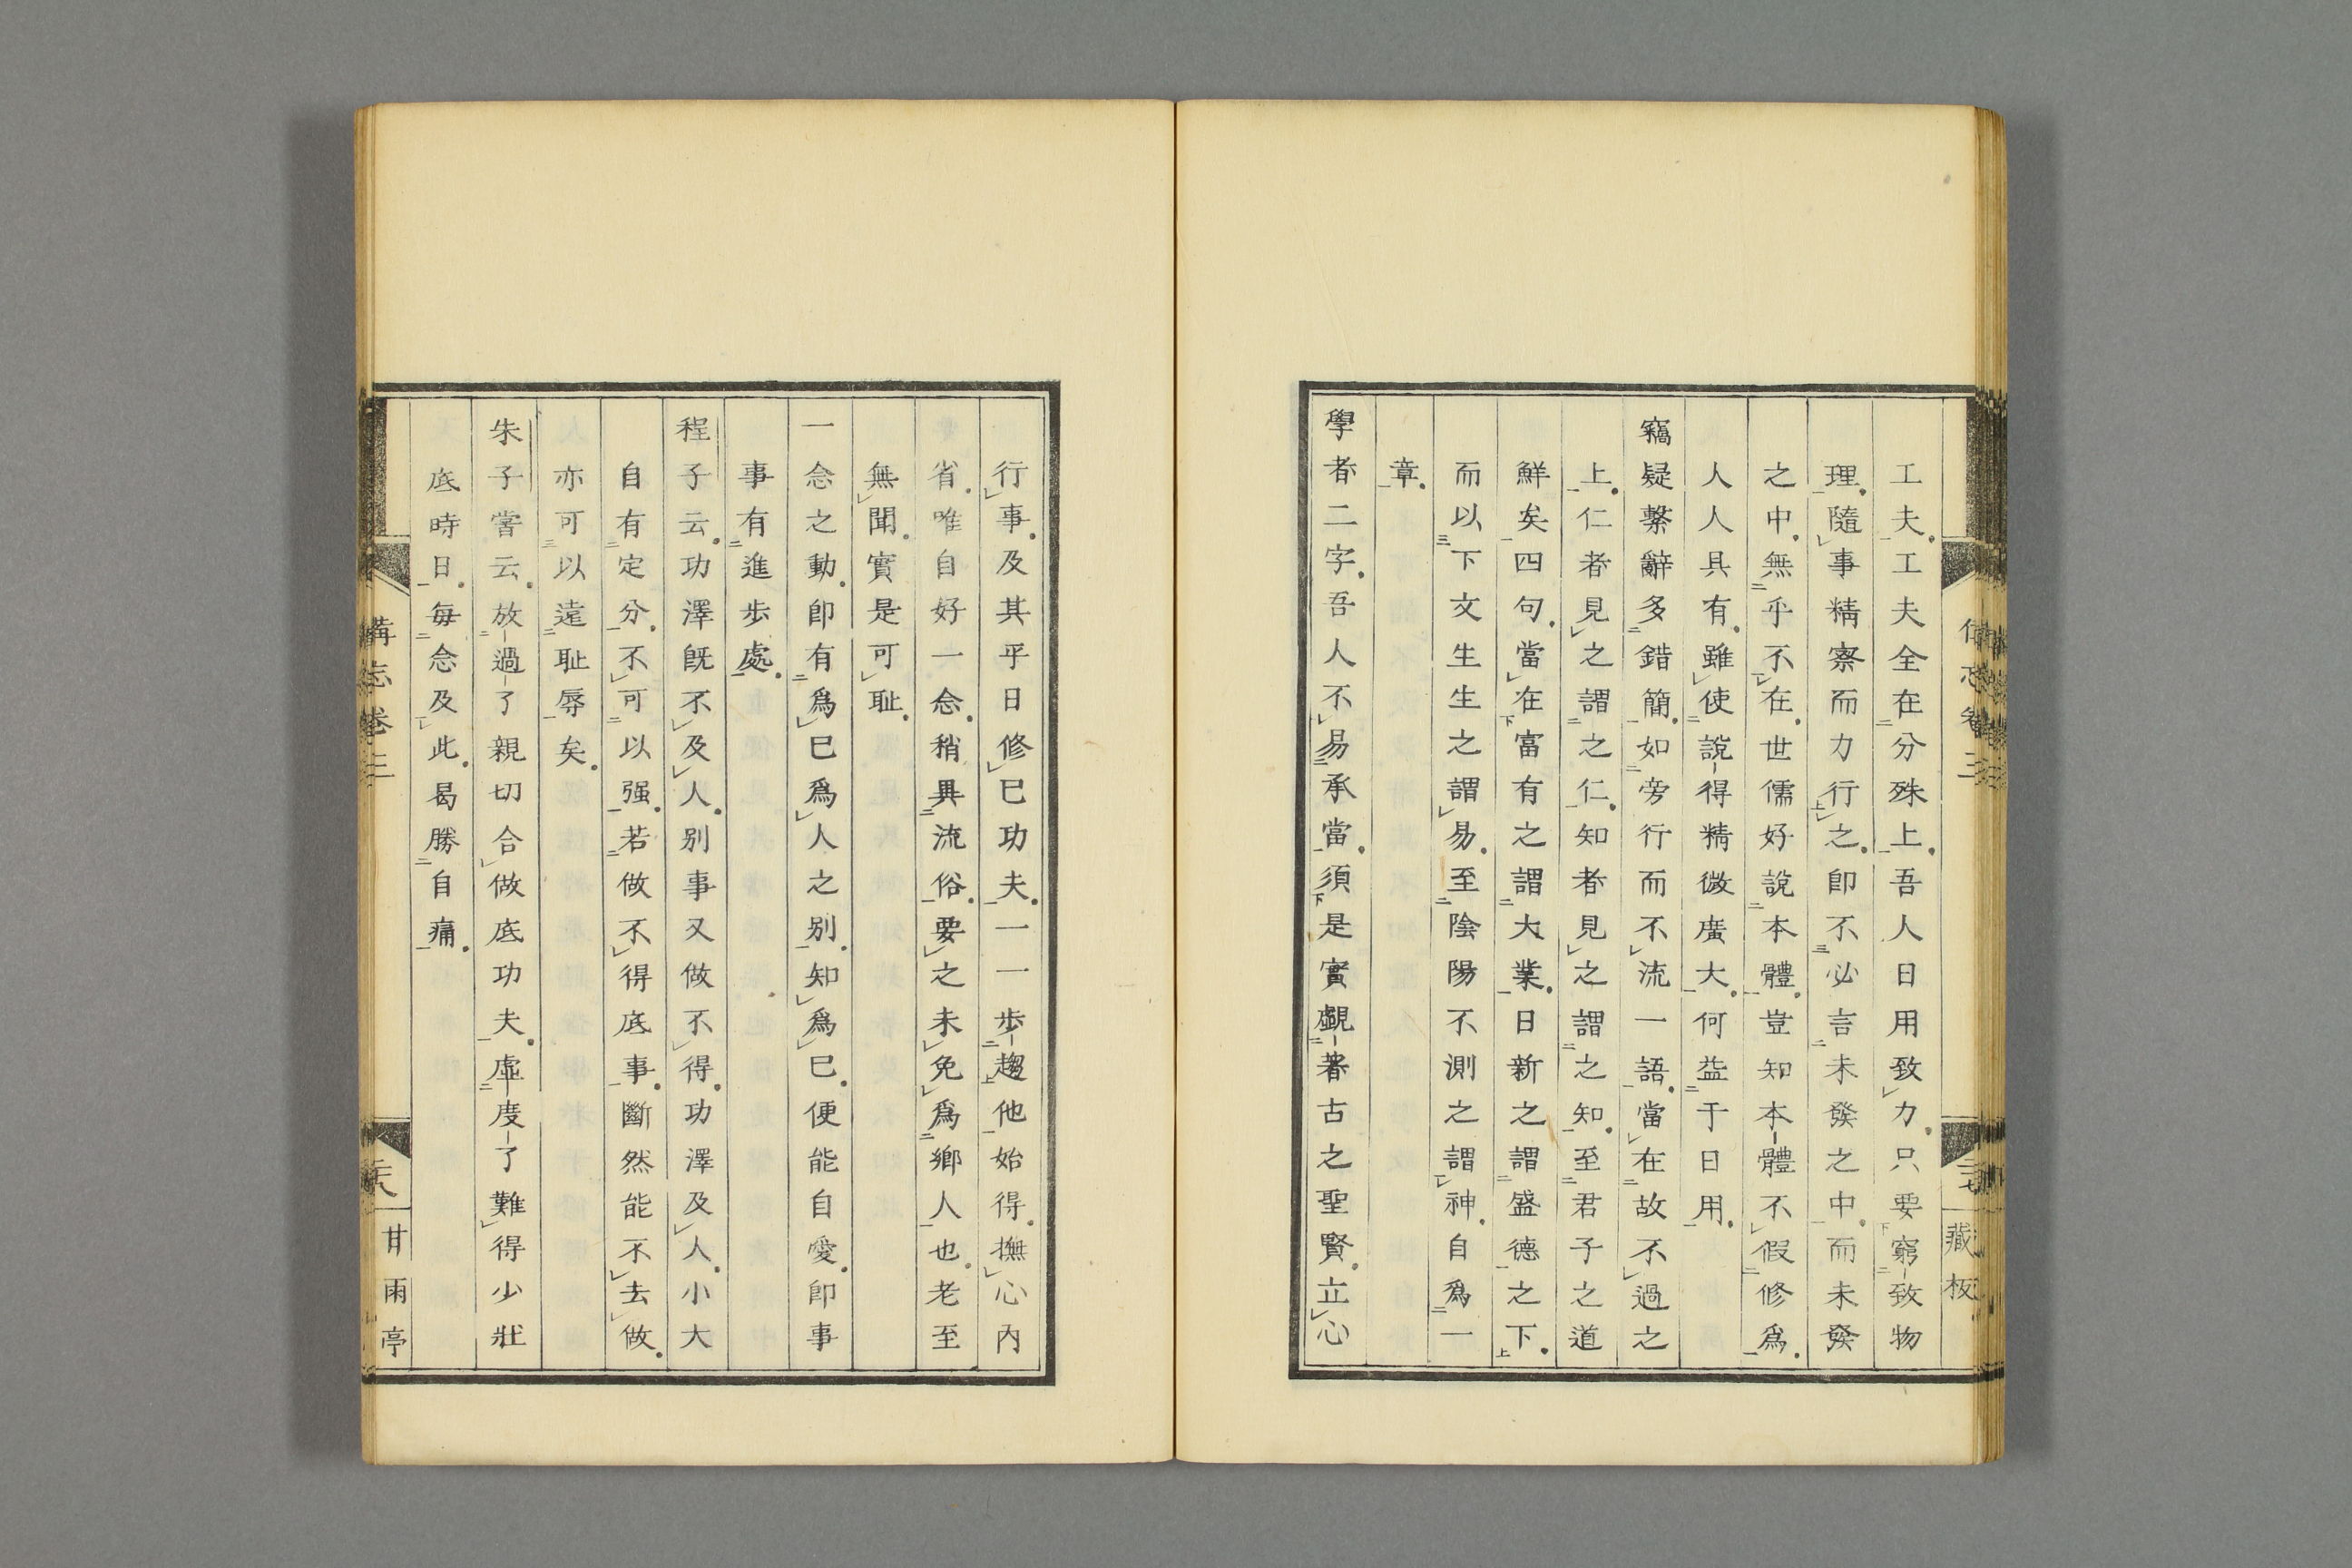 工夫。工夫全在分殊上。吾人日用致力。只要窮致物
理。隨事精察而力行之。卽不必言未發之中。而未發
之中。無乎不在。世儒好說本體。豈知本體不假修爲。
人人具有。雖使說得精微廣大。何益于日用。
竊疑繫辭多錯簡。如旁行而不流一語。當在故不過之
上。仁者見之謂之仁。知者見之謂之知。至君子之道
鮮矣四句。當在富有之謂大業。日新之謂盛德之下。
而以下文生生之謂易。至陰陽不測之謂神。自爲一
章。
學者二字。吾人不易承當。須是實覷著古之聖賢。立心
行事。及其平日修己功夫。一一步趨他始得。撫心內
省。唯自好一念。稍異流俗。要之未免爲鄉人也。老至
無聞。實是可耻。
一念之動。卽有爲己爲人之別。知爲己。便能自愛。卽事
事有進步處。
程子云。功澤旣不及人。別事又做不得。功澤及人。小大
自有定分。不可以强。若做不得底事。斷然能不去做。
亦可以遠耻辱矣。
朱子嘗云。放過了親切合做底功夫。虛度了難得少壯
底時日。每念及此。曷勝自痛。
備忘卷三
藏板
甘雨亭